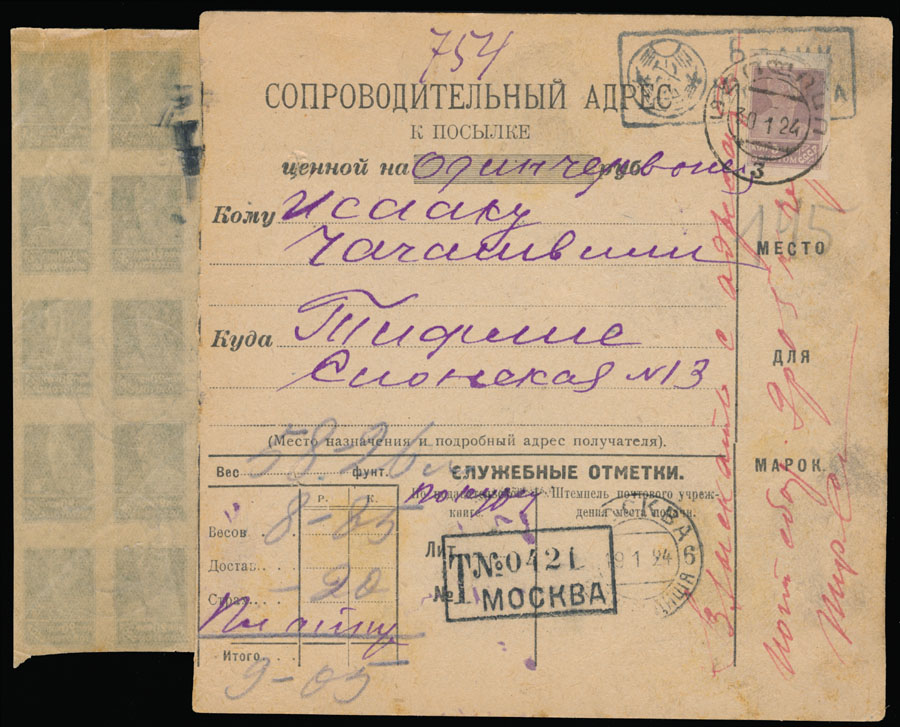 754
СОПРОВОДИТЕЛЬНЫЙ АДРЕС
К ПОСЫЛКЕ
ценной на один червонец руб.
Кому Исааку
Чачашвили
Куда Тифлис
Сионская №13
(Место назначения и подробный адрес получателя).
30 1 24
3
145
МЕСТО
ДЛЯ
МАРОК.
Вес 58.96 фунт.
Р. К.
Весов 8-85
Достав.
Страх -20
Итого 9-05
СЛУЖЕБНЫЕ ОТМЕТКИ.
По
книге.
Штемпель почтового учреж-
дения места подачи.
Лит
№
Т №0421
МОСКВА
МОСКВА
9 1 24
6
Взыскать с адресата
почт. сбор 9р 05к